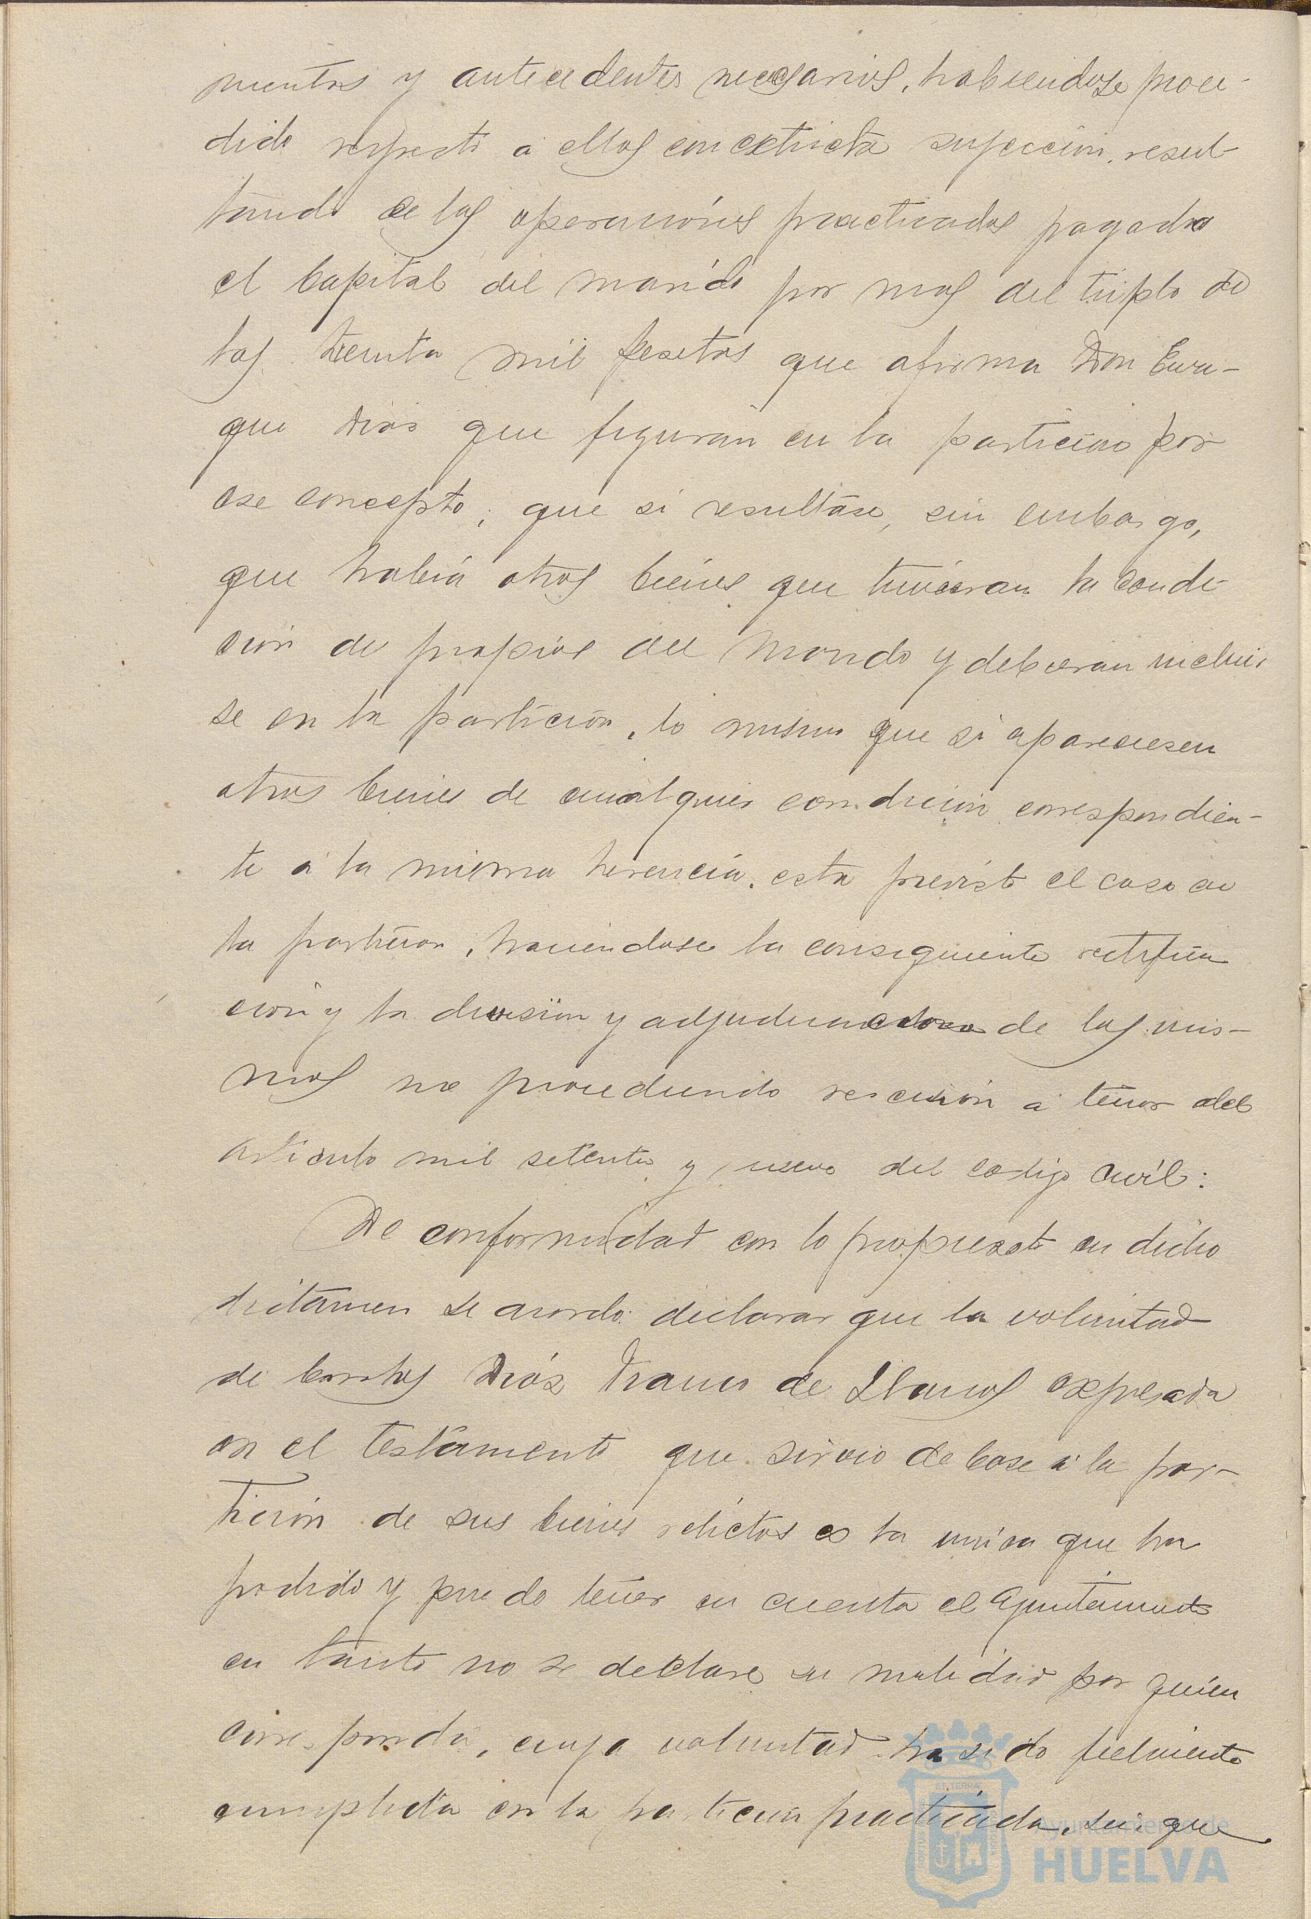 mentos y antecedentes necesarios, habiendose proce-
dido respecto a ellos con extricta sujeccion, resul-
tando de las operaciones practicadas pagado
el capital del marido por mas del triplo de
las treinta mil pesetas que afirma Don Enri-
que Dias que figuran en la particion por
ese concepto; que si resultase, sin embargo,
que habia otros bienes que tuvieran la condi-
cion de propios del marido y debieran incluir
se en la particion, lo mismo que si apareciesen
otros bienes de cualquier condicion correspondien-
te á la misma herencia, esta previsto el caso en
la particion, haciendose la consiguiente rectifica
cion y la division y adjudicacion de los mis-
mos no procediendo rescision a tenor del
articulo mil setenta y nueve del codigo civil:
De conformidad con lo propuesto en dicho
dictamen se acordo: declarar que la voluntad
de Carlos Diaz Franco de Llanos expresada
en el testamento que sirvio de base á la par-
ticion de sus bienes relictos es la unica que ha
podido y puede tener en cuenta el Ayuntamiento
en tanto no se declare su nulidad por quien
corresponda, cuya voluntad ha sido fielmente
cumplida en la particion practicada, sin que
Ayuntamiento de
HUELVA